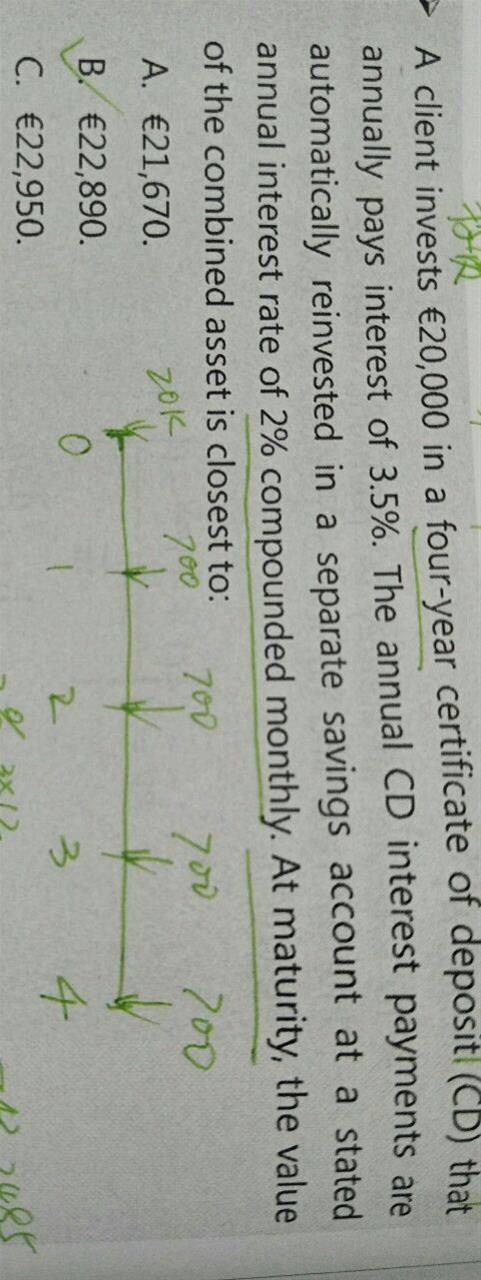 A client invests €20,000 in a four-year certificate of deposit (CD) that
annually pays interest of 3.5%. The annual CD interest payments are
automatically reinvested in a separate savings account at a stated
annual interest rate of 2% compounded monthly. At maturity, the value
of the combined asset is closest to:
A. €21,670.
B. €22,890.
C. €22,950.
20K 700 700 700 700
0 1 2 3 4